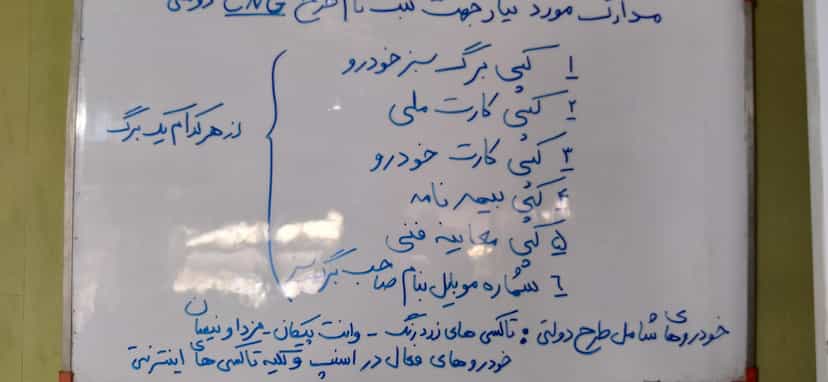 مدارک مورد نیاز جهت ثبت نام طرح CNG دولتی
۱ کپی برگ سبز خودرو
۲ کپی کارت ملی
۳ کپی کارت خودرو
۴ کپی بیمه نامه
۵ کپی معاینه فنی
۶ شماره موبایل بنام صاحب برگ سبز
از هر کدام یک برگ
خودروهای شامل طرح دولتی : تاکسی های زرد رنگ - وانت پیکان - مزدا و نیسان
خودروهای فعال در اسنپ و کلیه تاکسی های اینترنتی